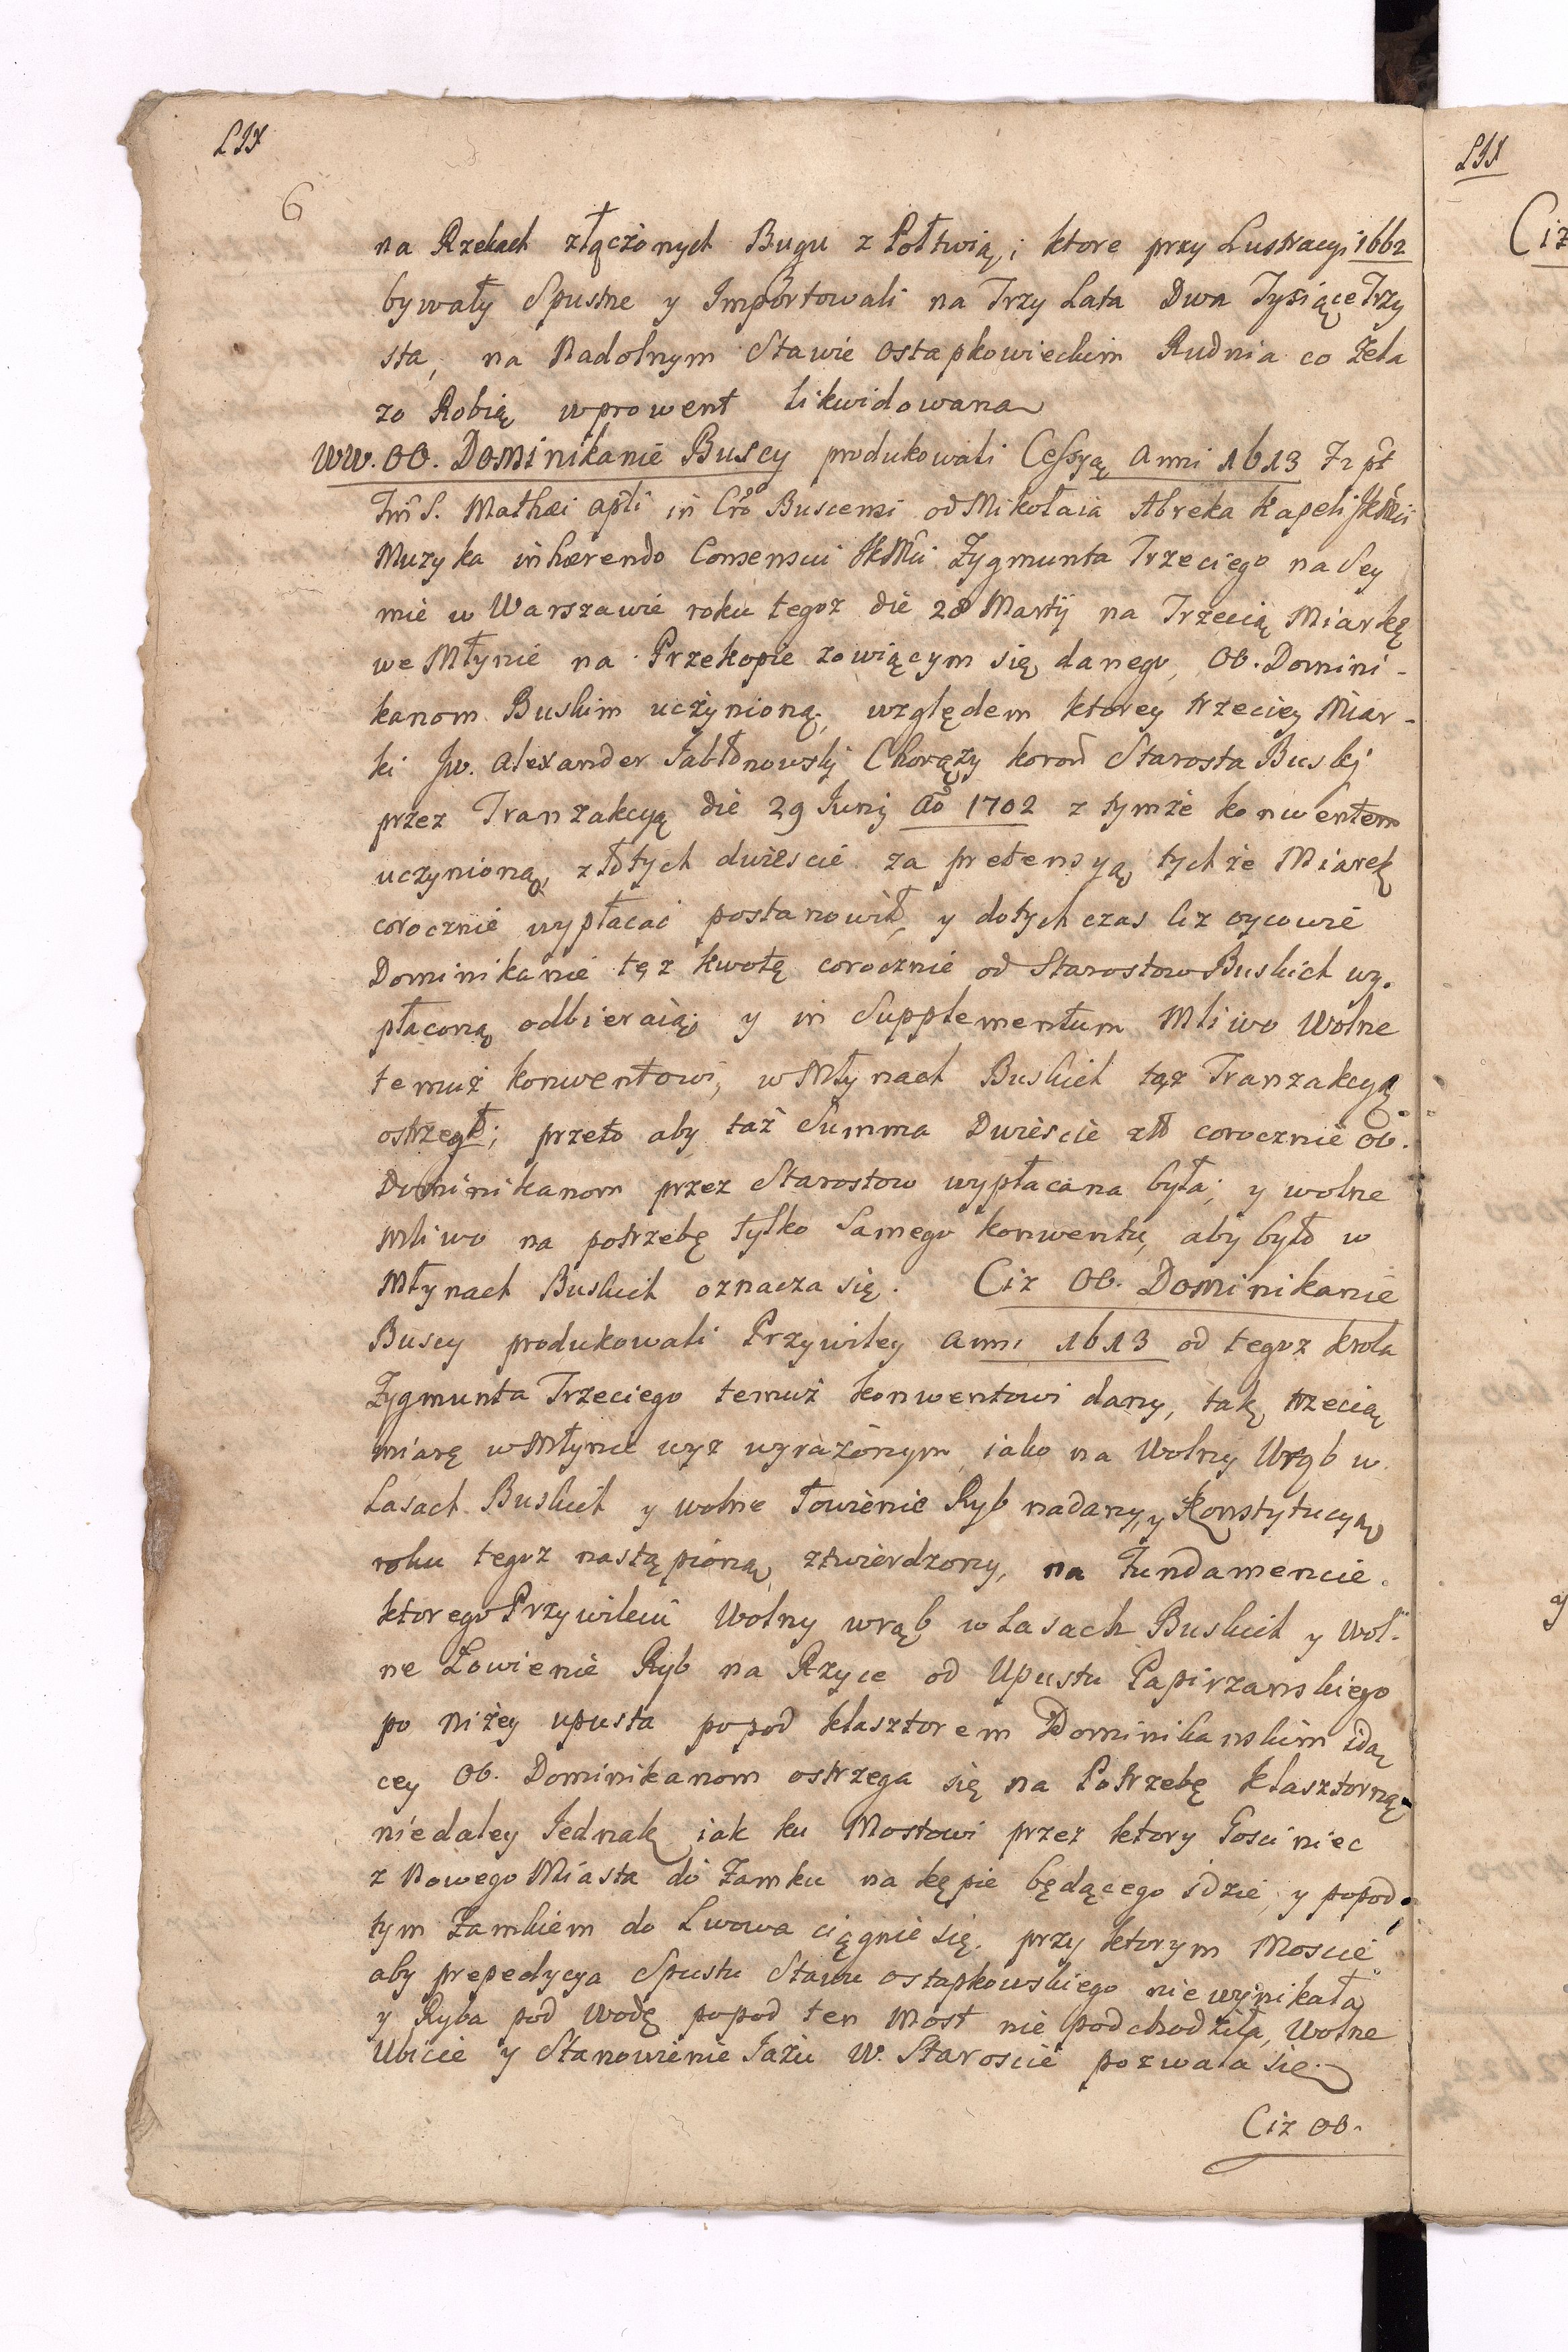 LIX
6
na Rzekach złączonych Bugu z Połtwią; ktore przy Lustracyi 1662
bywały Spustne y Importowali na Trzy Lata Dwa Tysiące Trzy
sta, na Nadolnym Stawie Ostapkowieckim Rudnia co Żela
zo Robią w prowent likwidowana
WW. OO. Dominikanie Buscy produkowali Cessyą Anni 1613
S. Mathæi apli in Cro Buscensi od Mikołaia Abreka Kapeli JKMci
Muzyka inhærendo Consensui JKMci Zygmunta Trzeciego na Sey
mie w Warszawie roku tegoż die 28 Martij na Trzecią Miarkę
we Młynie na Przekopie zowiącym się danego, OO. Domini-
kanom Buskim uczynioną, względem ktorey trzeciey Miar-
ki Jw. Alexander Jabłonowski Chorąży koron Starosta Buski
przez Tranzakcyą die 29 Junij Ao 1702 z tymże konwentem
uczynioną, złotych dwieście za pretensyą tychże Miarek
corocznie wypłacać postanowił, y dotychczas Ciż oycowie
Dominikanie tęż kwotę corocznie od Starostow Buskich wy-
płaconą odbieraią; y in Supplementum Mliwo Wolne
temuż konwentowi, w Młynach Buskich tąż Tranzakcyą
ostrzegł; przeto aby taż Summa Dwieście zło corocznie OO.
Dominikanom przez Starostow wypłacana była; y wolne
Mliwo na potrzebę tylko Samego konwentu, aby było w
Młynach Buskich oznacza się. Ciż OO. Dominikanie
Buscy produkowali Przywiley anni 1613 od tegoż krola
Zygmunta Trzeciego temuż konwentowi dany, tak trzecią
miarę w Młynie wyż wyrażonym, iako na Wolny Wrąb w
Lasach Buskich y wolne łowienie Ryb nadany, y Konstytucyą
roku tegoż nastąpioną ztwierdzony, na Fundamencie
ktorego Przywileiu Wolny wrąb w Lasach Buskich y wol-
ne Łowienie Ryb na Rzyce od Upustu Papirzanskiego
po niżey upusta popod klasztorem Dominikanskim idą
cey OO. Dominikanom ostrzega się na Potrzebę klasztorną
niedaley Jednak iak ku Mostowi przez ktory Gosciniec
z Nowego Miasta do Zamku na kępie będącego idzie, y popod
tym Zamkiem do Lwowa ciągnie się. przy ktorym Moscie
aby prepedycya Spustu Stawu Ostapkowskiego niewynikała
y Ryba pod wodę popod ten Most nie podchodziła, Wolne
Ubicie y Stanowienie Jazu W. Staroscie pozwala się.
Ciż OO.
LIX
Ciż